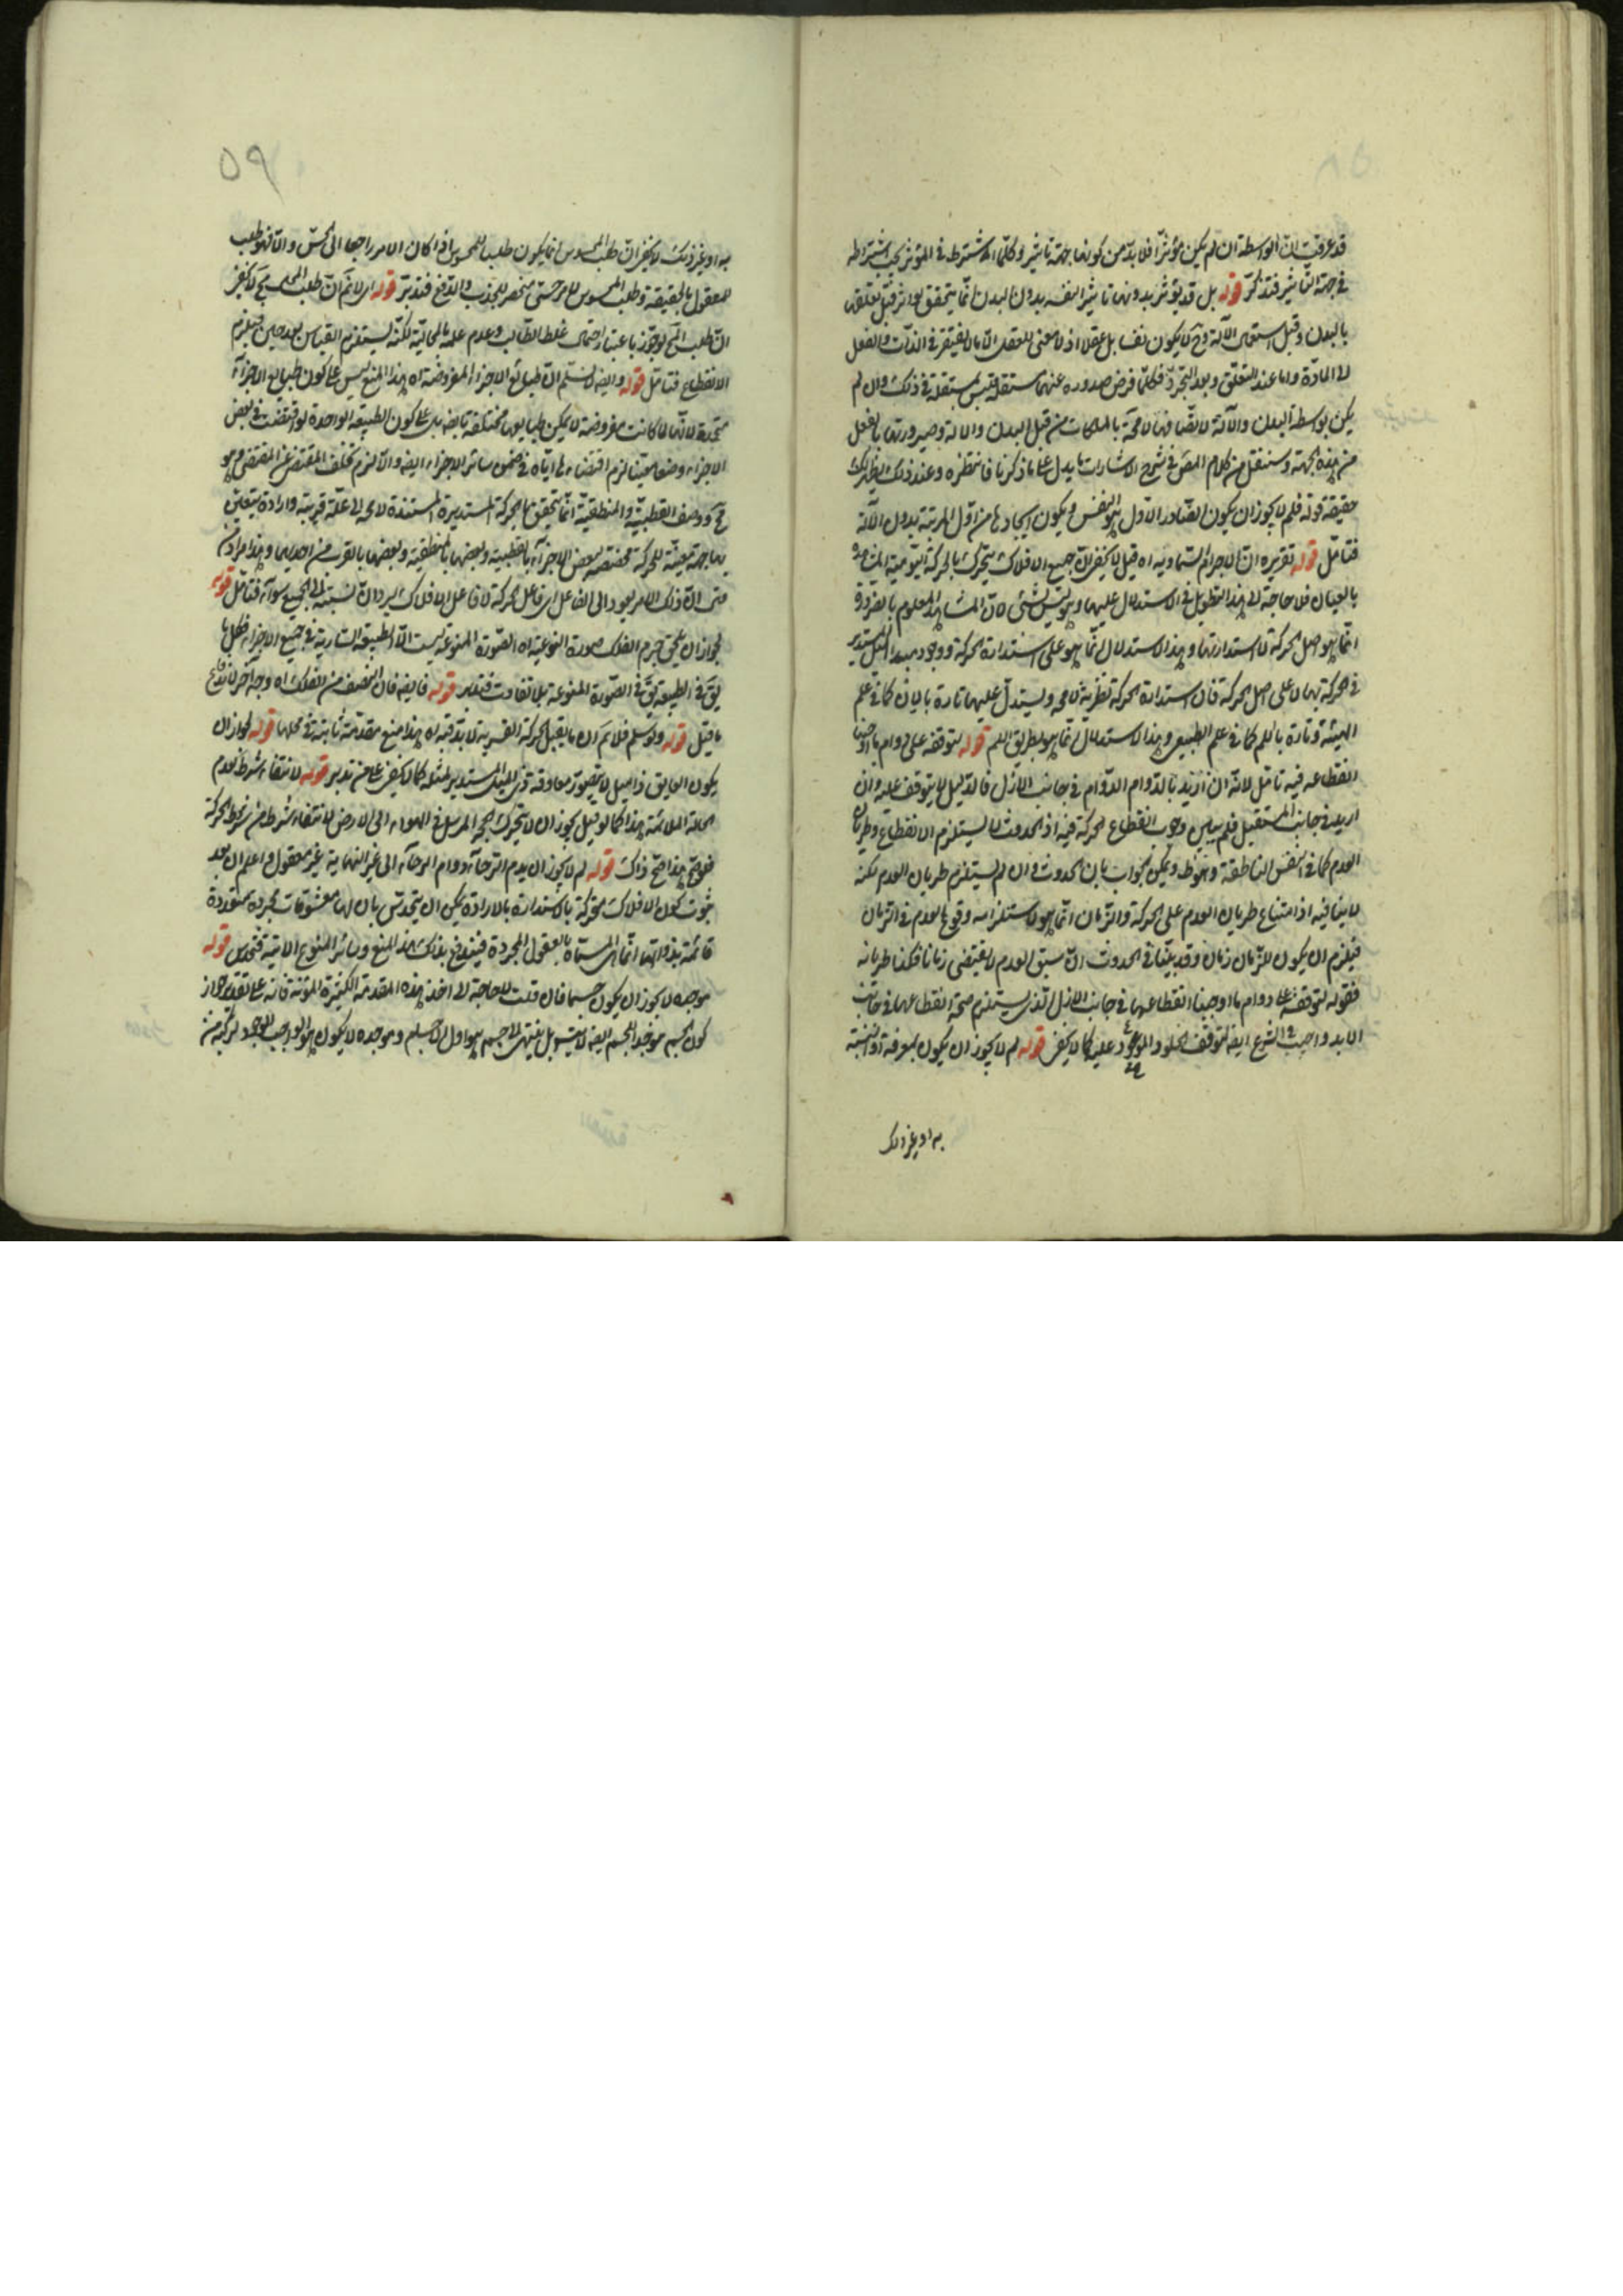 قد عرفت ان الواسطة ان لم يكن مؤثرا فلا بد من كونها جهة تاثير وكلما اشترط في المؤثر يجب اشتراطه
في جهة التاثير فتذكر قوله بل قد يؤثر بدونها تاثير النفس بدون البدن انما يتحقق قبل تعلقها
بالبدن وقبل استعمال الآلة وح لا يكون نفسا بل عقلا اذ لا معنى للعقل الا ما لا يفتقر في الذات والفعل
الى المادة واما عند التعلق وبعد التجرد فكلما فرض صدوره عنها مستقلة ليس مستقلة في ذلك وان لم
يكن بواسطة البدن والآلة لاتصافها لا محة بالملكات من قبل البدن والآلة وصيرورتها بالفعل
من هذه الجهة وسننقل من كلام المص في شرح الاشارات ما يدل على ما ذكرنا فانتظره وعند ذلك يظهر لك
حقيقة قوله فلم لا يجوز ان يكون الصادر الاول هو النفس ويكون ايجادها من اول المرتبة بدون الآلة
فتامل قوله تقريره ان الاجرام السماوية اه قيل لا يخفى ان جميع الافلاك يتحرك بالحركة اليومية المشاهدة
بالعيان فلا حاجة الى هذا التطويل في الاستدلال عليها وهو ليس بشئ لان المشاهد المعلوم بالضرورة
انما هو اصل الحركة لا استدارتها وهذا الاستدلال انما هو على استدارة الحركة ووجود مبدا الميل المستدير
في الحركة بها لا على اصل الحركة فان استدارة الحركة نظرية لا محة ويستدل عليها تارة بالان كما في علم
الهيئة وتارة باللم كما في علم الطبيعي وهذا الاستدلال انما هو بطريق اللم قوله لتوقفه على دوام ما اوجبنا
انقطاعه فيه تامل لانه ان اريد بالدوام الدوام في جانب الازل فالدليل لا يتوقف عليه وان
اريد في جانب المستقبل فلم يبين وجوب انقطاع الحركة فيه اذ الحدوث لا يستلزم الانقطاع وطريان
العدم كما في النفس الناطقة وهو ظ ويمكن الجواب بان الحدوث وان لم يستلزم طريان العدم لكنه
لا ينافيه اذ امتناع طريان العدم على الحركة والزمان انما هو لاستلزامه وقوع العدم في الزمان
فيلزم ان يكون للزمان زمان وقد بينا في الحدوث ان سبق العدم لا يقتضي زمانا فكذا طريانه
فقوله لتوقفه على دوام ما اوجبنا انقطاعها في جانب الازل الذي يستلزم صحة انقطاعها في جانب
الابد واجب في الشرع ايضا لتوقف الخلود الموعود عليه كما لا يخفى قوله لم لا يجوز ان يكون لمعرفة او لتشبه
به او غير ذلك
٥٩
به او غير ذلك لا يخفى ان طلب المحسوس انما يكون طلب المحسوس اذا كان الامر راجعا الى الحس والا فهو طلب
للمعقول بالحقيقة وطلب المحسوس لامر حسي منحصر للجذب والدفع فتدبر قوله اى لا نم ان طلب المح مح لا يخفى
ان طلب المح لو جوز باعتبار احتمال غلط الطالب وعدم علمه بالمحالية لكنه يستلزم القياس بعد حين فيلزم
الانقطاع فتامل قوله وايضا لا نسلم ان طبائع الاجزاء المفروضة اه هذا المنع ليس على كون طبائع الاجزاء
متحدة لانها لما كانت مفروضة لا يمكن طبايعها مختلفة بل على كون الطبيعة الواحدة لو اقتضت في بعض
الاجزاء وضعا معينا لزم اقتضاءها اياه في ضمن سائر الاجزاء ايضا والا لزم تخلف المقتضى عن المقتضي وهو
مح ووصف القطبية والمنطقية انما يتحقق بالحركة المستديرة المستندة لا محة الى علة قريبة وارادة يتعين
بها جهة معينة للحركة مختصة لبعض الاجزاء بالقطبية وبعضها بالمنطقية وبعضها بالقرب من احديهما وهذا مراد من
منى ان ذلك الامر يعود الى الفاعل اى فاعل الحركة لا فاعل الافلاك ليرد ان نسبته الى الجميع سواء فتامل قوله
لجواز ان يلحق جرم الفلك صورة النوعية اه الصورة النوعية ليست الا الطبيعة السارية في جميع الاجزاء فكل ما
يق في الطبيعة يق في الصورة النوعية بلا تفاوت فتدبر قوله فايضا فان النصف من الفلك اه وجه آخر لدفع
ما قيل قوله ولو سلم فلا نم ان ما يقبل الحركة القسرية لا بد فيه اه هذا منع مقدمة ثابتة في محلها قوله لجواز ان
يكون العايق ذا ميل لا يتصور معاوقة ذي الميل المستدير لمثله كما لا يخفى على من تدبر قوله لانتفاء شرط لعدم
الحالة الملائمة هذا كما لو قيل يجوز ان لا يتحرك الحجر المرسل في الهواء الى الارض لانتفاء شرط من شرايط الحركة
فلو صح هذا صح ذاك قوله لم لا يجوز ان يدوم الرجاء دوام الرجاء الى غير النهاية غير معقول واعلم ان بعد
ثبوت كون الافلاك متحركة بالاستدارة بالارادة يمكن ان يتحدس بان لها معشوقات مجردة متعددة
قائمة بذواتها انما هى المسماة بالعقول المجردة فيندفع بذلك هذا المنع وسائر المنوع الاتية فتحدس قوله
موجده لا يجوز ان يكون جسما فان قلت لا حاجة الى اخذ هذه المقدمة الكثيرة المؤنة فانه على تقدير جواز
كون الجسم موجدا لجسم ايضا لا يتسلسل بل ينتهى الى جسم هو اول الاجسام وموجده لا يكون هو الواجب الوجود لتركبه من